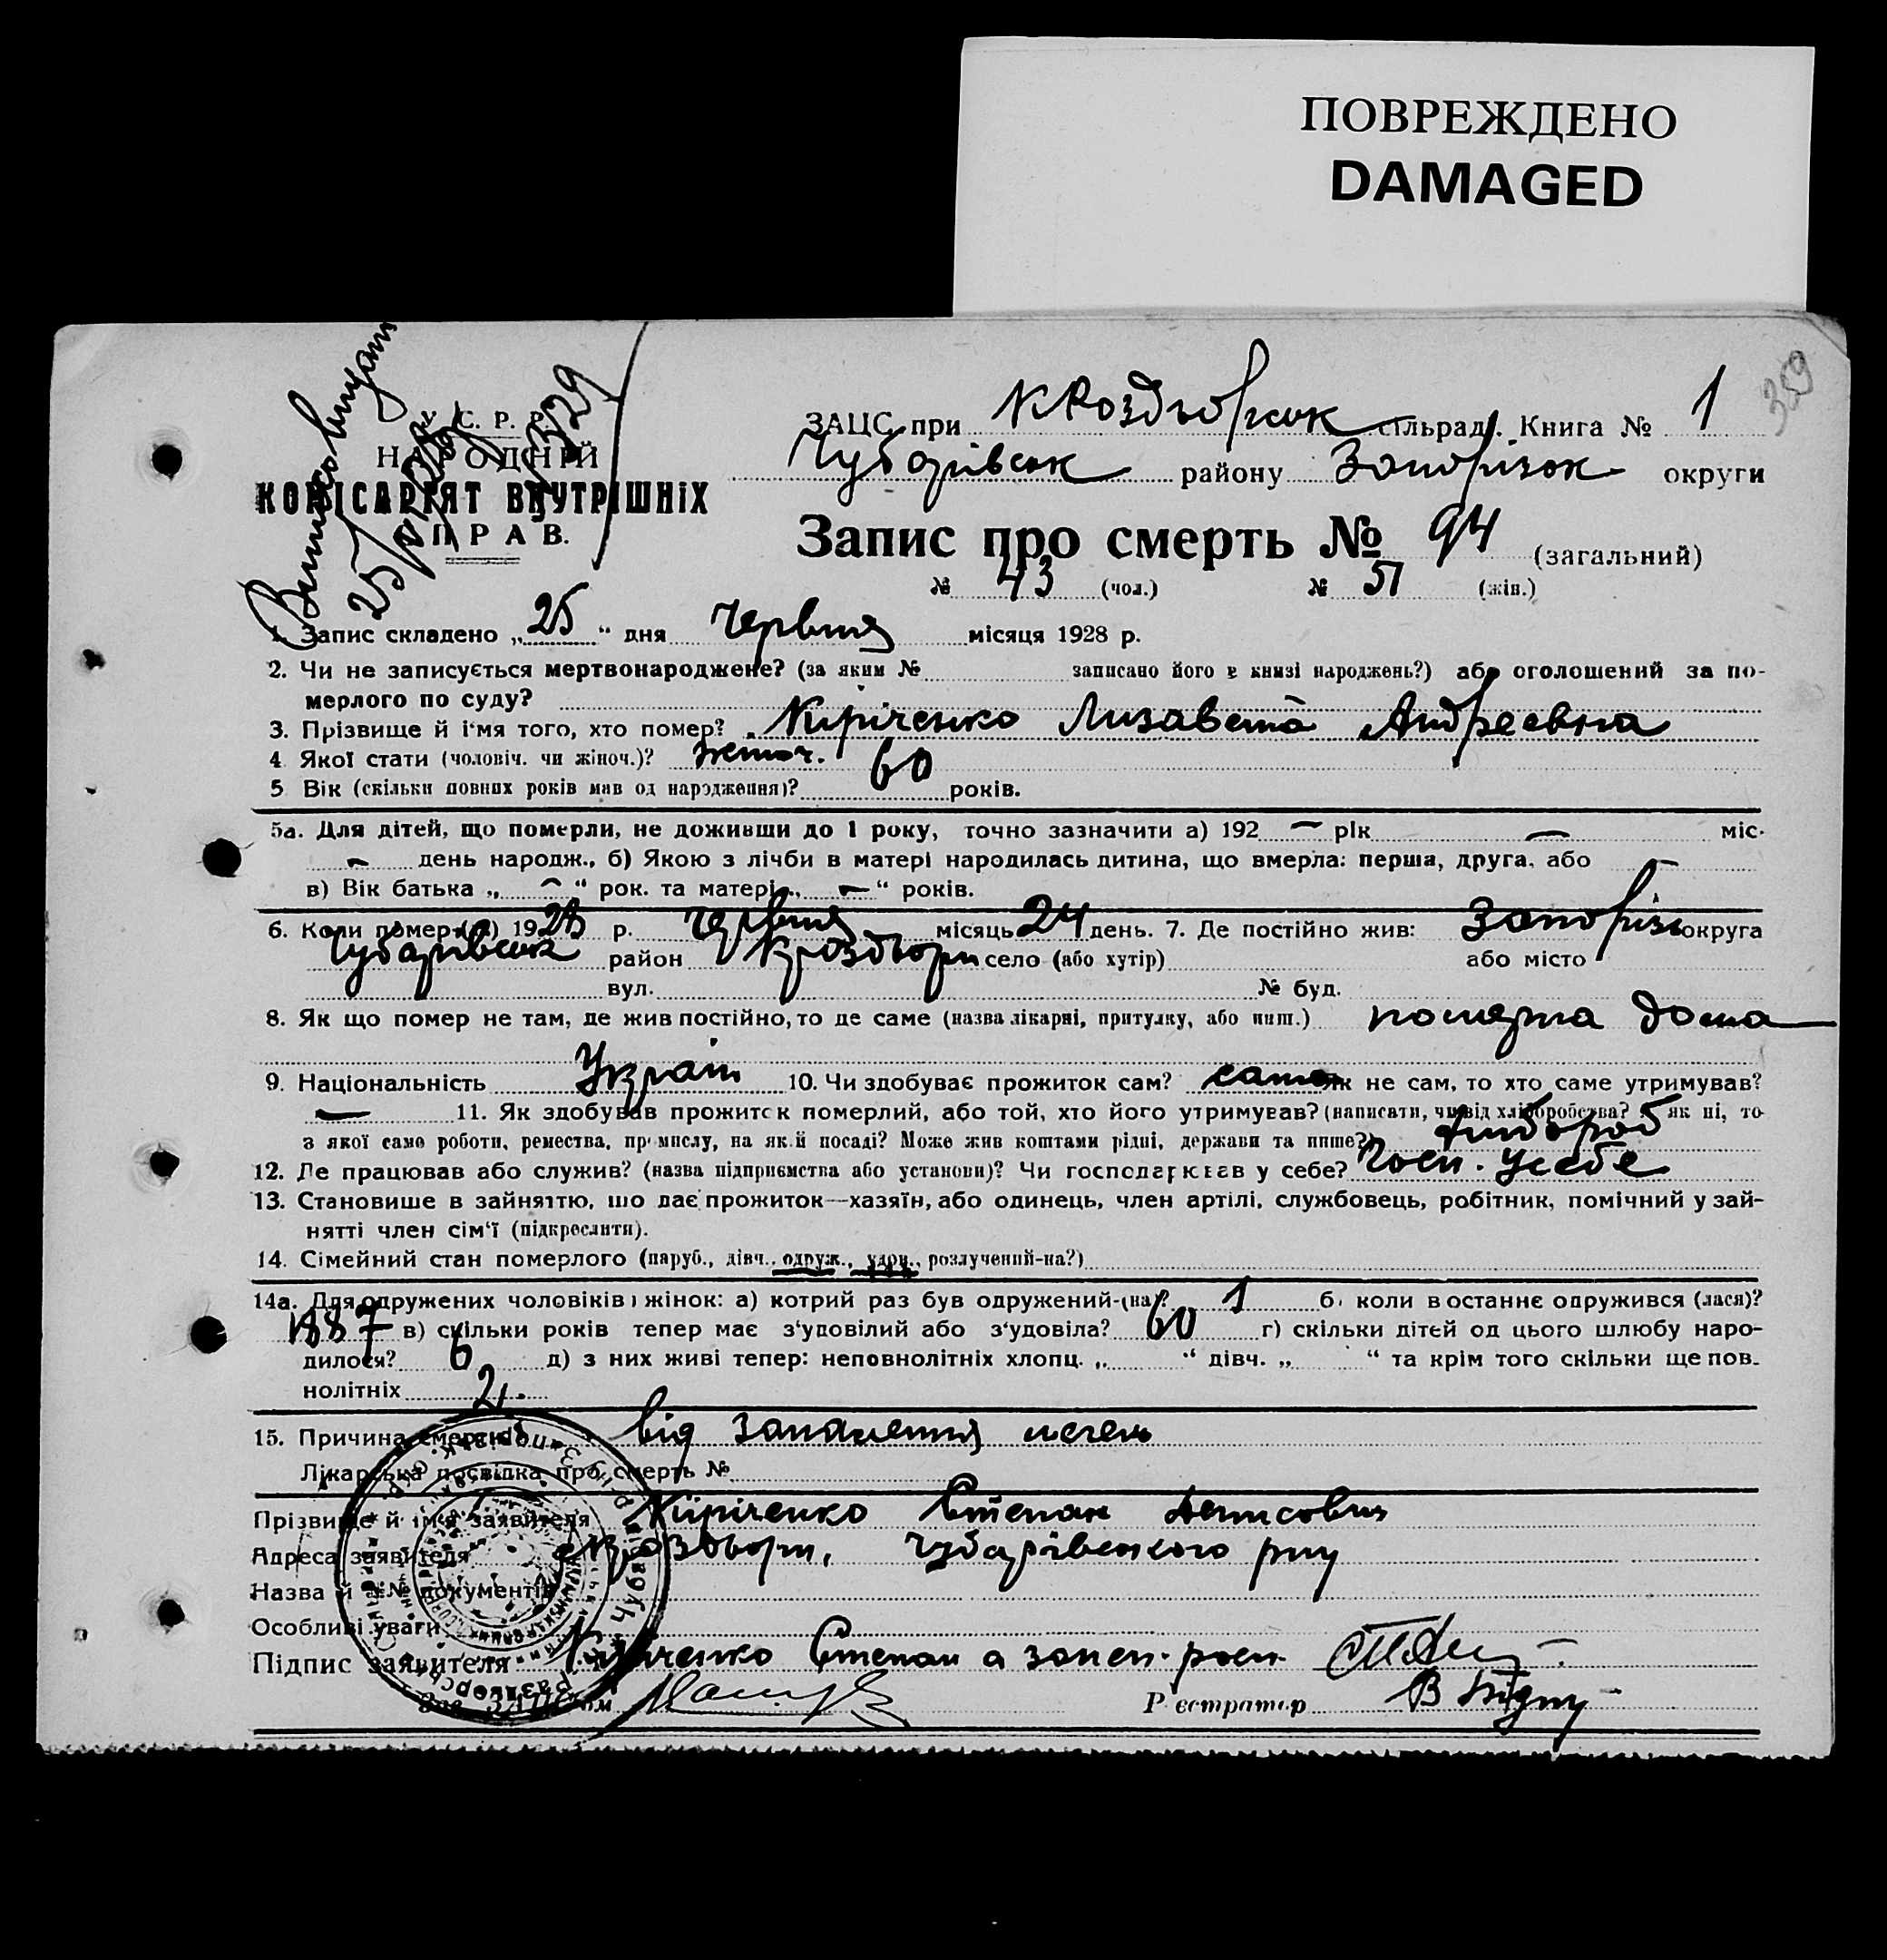 ПОВРЕЖДЕНО
DAMAGED
359
У. С. Р. Р.
НАРОДНІЙ
КОМІСАРІЯТ ВНУТРІШНІХ
СПРАВ.
ЗАЦС при сільрад. Книга № 1
Чубарівськ району Запорізьк округи
Запис про смерть № 94 (загальний)
№ 43 (чол.) № 51 (жін.)
1. Запис складено „ 25 “ дня Червня місяця 1928 р.
2. Чи не записується мертвонароджене? (за яким № записано його в книзі народжень?) або оголошений за по-
мерлого по суду?
3. Прізвище й і'мя того, хто помер? Кіріченко Лизавета Андреевна
4 Якої стати (чоловіч. чи жіноч.)? жіноч.
5 Вік (скільки повних років мав од народження)? 60 років.
5а. Для дітей, що померли, не доживши до 1 року, точно зазначити а) 192 — рік — міс.
— день народж., б) Якою з лічби в матері народилась дитина, що вмерла: перша, друга, або —
в) Вік батька „ — “ рок. та матері „ — “ років.
6. Коли помер(ла) 1928 р. Червня місяць 24 день. 7. Де постійно жив: Запорізьк округа
Чубарівськ район село (або хутір) або місто
вул. № буд.
8. Як що помер не там, де жив постійно, то де саме (назва лікарні, притулку, або инш.) померла дома
9. Національність Україн 10. Чи здобуває прожиток сам? сама як не сам, то хто саме утримував?
— 11. Як здобував прожиток померлий, або той, хто його утримував? (написати, чи від хліборобства? А як ні, то
з якої саме роботи, ремества, промислу, на якій посаді? Може жив коштами рідні, держави та инше?) хлібороб
12. Де працював або служив? (назва підприємства або установи)? Чи господарював у себе? Госп. у себе
13. Становище в зайняттю, що дає прожиток—хазяїн, або одинець, член артілі, службовець, робітник, помічний у зай-
нятті член сім'ї (підкреслити).
14. Сімейний стан померлого (паруб., дівч., одруж., удов., розлучений-на?)
14а. Для одружених чоловіків і жінок: а) котрий раз був одружений-(на)? 1 б) коли в останнє одружився (лася)?
1887 в) скільки років тепер має з'удовілий або з'удовіла? 60 г) скільки дітей од цього шлюбу наро-
дилося? 6 д) з них живі тепер: неповнолітніх хлопц. „ “ дівч. „ “ та крім того скільки ще пов-
нолітніх 2.
15. Причина смерти? від запалення легень
Лікарська посвідка про смерть №
Прізвище й ім'я заявителя Кіріченко Степан Денисович
Адреса заявителя Чубарівського р-ну
Назва й № документів
Особливі уваги
Підпис заявителя Кіріченко Степан а
Зав. ЗАЦС'ом Реєстратор